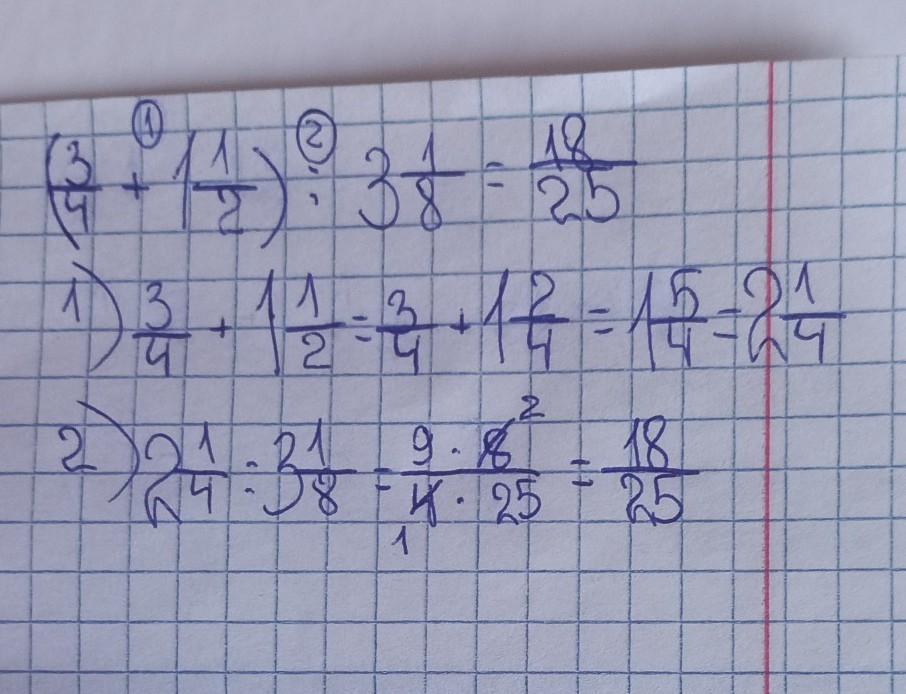 (3/4 + 1 1/2) : 3 1/8 = 18/25
1) 3/4 + 1 1/2 = 3/4 + 1 2/4 = 1 5/4 = 2 1/4
2) 2 1/4 : 3 1/8 = 9 · 8 2/4 1 · 25 = 18/25